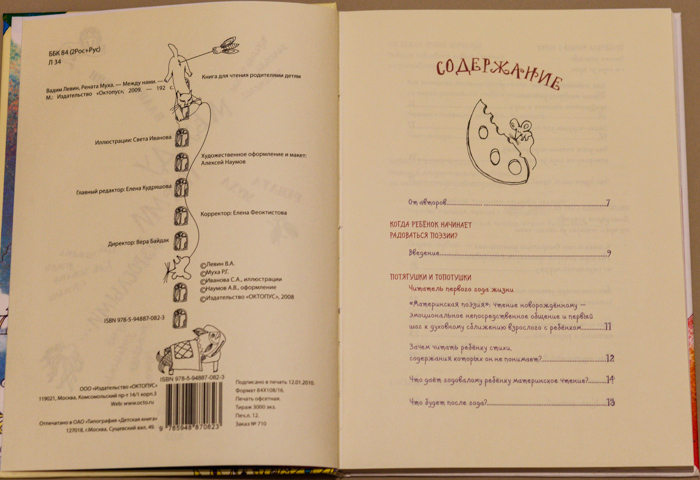 ББК 84 (2Рос+Рус)
Л 34
Вадим Левин, Рената Муха. — Между нами. —
М.: Издательство «Октопус», 2009. — 192 с.
Книга для чтения родителями детям
Иллюстрации: Света Иванова
Художественное оформление и макет:
Алексей Наумов
Главный редактор: Елена Кудряшова
Корректор: Елена Феоктистова
Директор: Вера Байдак
©Левин В.А.
©Муха Р.Г.
©Иванова С.А., иллюстрации
©Наумов А.В., оформление
©Издательство «ОКТОПУС», 2008
ISBN 978-5-94887-082-3
ISBN 978-5-94887-082-3
9 785948 870823
ООО «Издательство «ОКТОПУС»
119021, Москва, Комсомольский пр-т 14/1 корп.3
Web: www.octo.ru
Отпечатано в ОАО «Типография «Детская книга»
127018, г.Москва, Сущевский вал, 49.
Подписано в печать 12.01.2010.
Формат 84Х108/16.
Печать офсетная.
Тираж 3000 экз.
Печ.л. 12.
Заказ № 710
СОДЕРЖАНИЕ
От авторов 7
КОГДА РЕБЁНОК НАЧИНАЕТ
РАДОВАТЬСЯ ПОЭЗИИ?
Введение 9
ПОТЯГУШКИ И ТОПОТУШКИ
Читатель первого года жизни
«Материнская поэзия»: чтение новорождённому —
эмоциональное непосредственное общение и первый
шаг к духовному сближению взрослого с ребёнком 11
Зачем читать ребёнку стихи,
содержания которых он не понимает? 12
Что даёт годовалому ребёнку материнское чтение? 14
Что будет после года? 15